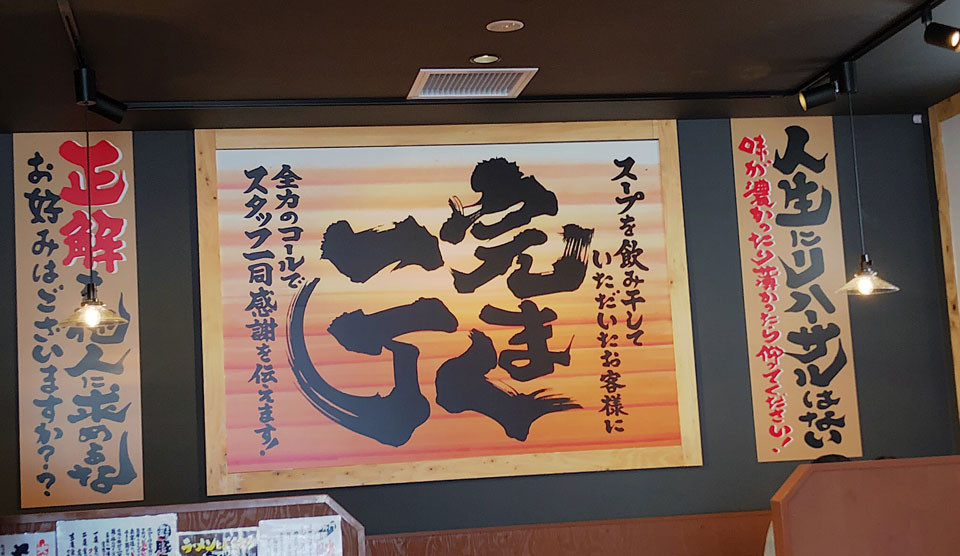 人生にリハーサルはない
味が濃かったり薄かったら仰ってください!
スープを飲み干して
いただいたお客様に
完まく
一丁
全力のコールで
スタッフ一同感謝を伝えます!
正解を他人に求めるな
お好みはございますか??